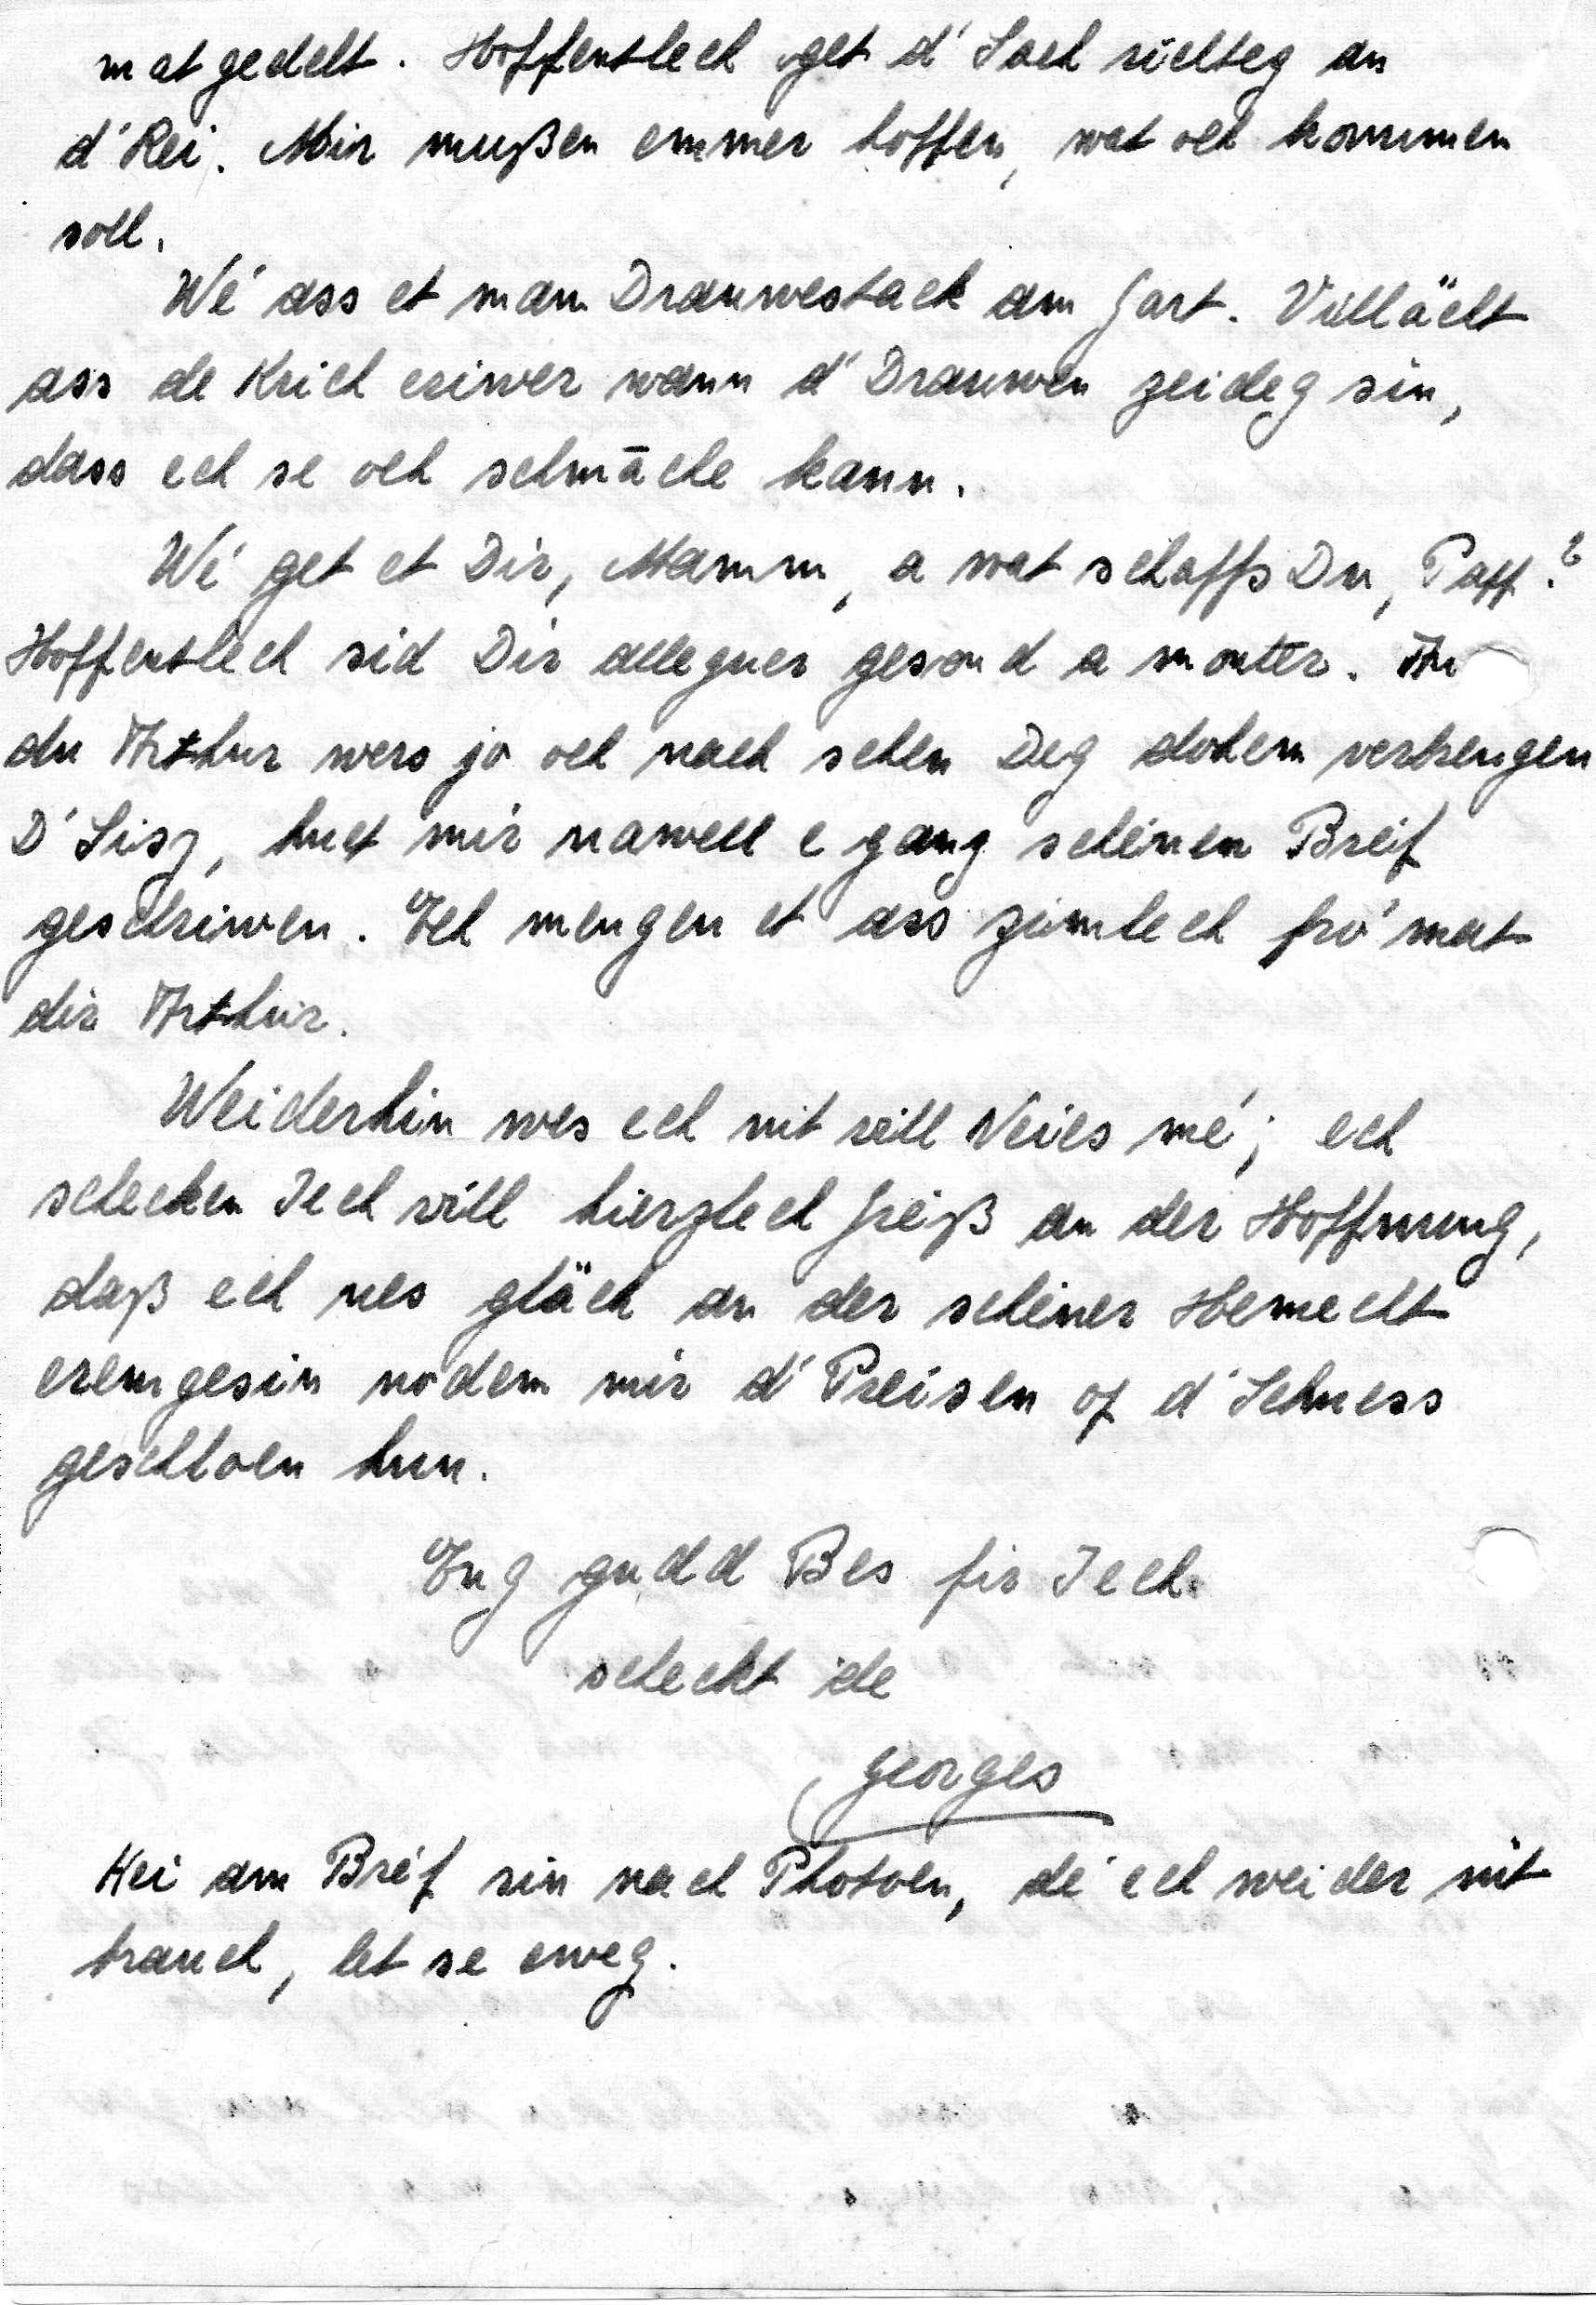 matgedelt. Hoffentlech get d'Sach richteg an
d'Rei. Mir mußen emmer hoffen, wat och kommen
soll.
Wé ass et mam Drauwestack am Gart. Villächt
ass de Krich eriwer wann d'Drauwen zeideg sin,
dass ech se och schmāche kann.
Wé get et Dir, Mamm, a wat schaffs Du, Papp?
Hoffentlech sid Dir alleguer gesond a monter. An
du Arthur wers jo och nach schen Deg dohem verbrengen
D'Sisy, huet mir nawell e gang schéinen Bréif
geschriwen. Ech mengen et ass zimlech fró mat
dir Arthur.
Weiderhin wes ech nit vill Neies mé; ech
schecken Iech vill hierzlech Gréiß an der Hoffnung,
daß ech ues gläch an der schéiner Hemecht
eremgesin nodem mir d'Preisen op d'Schness
geschloen hun.
Eng gudd Bes fir Iech
scheckt de
Georges
Hei am Bréf sin nach Photoen, dé ech weider nit
brauch, let se eweg.